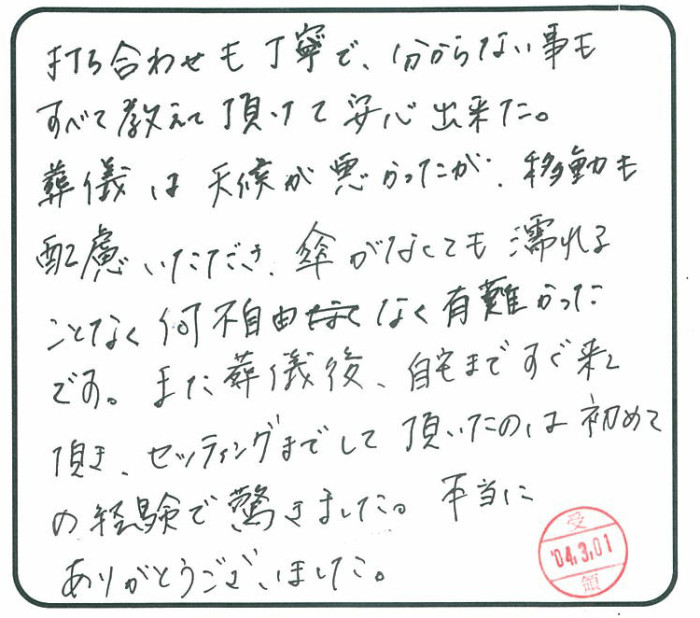 打ち合わせも丁寧で、分からない事も
すべて教えて頂けて安心出来た。
葬儀は天候が悪かったが、移動も
配慮いただき、傘がなくても濡れる
ことなく何不自由なくなく有難かった
です。また葬儀後、自宅まですぐ来て
頂き、セッティングまでして頂いたのは初めて
の経験で驚きました。本当に
ありがとうございました。
受
'04.3.01
領